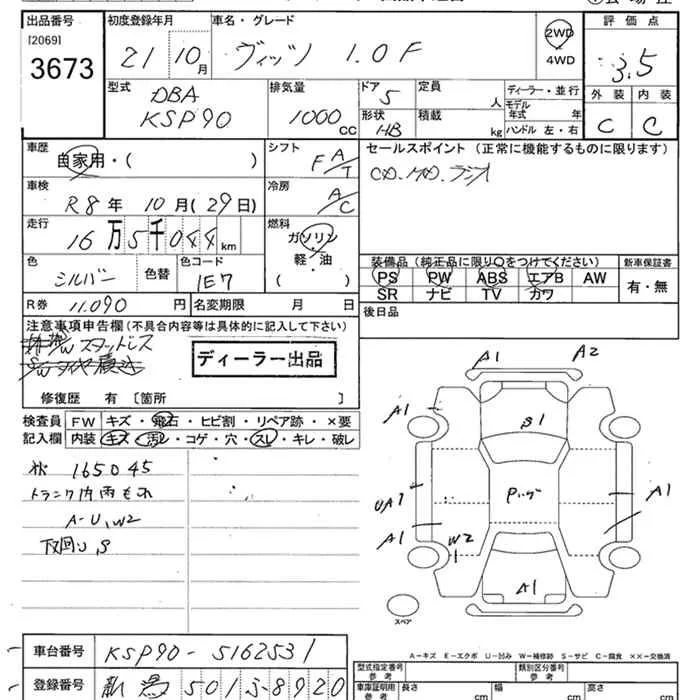 出品番号 初度登録年月 車名・グレード 評価点
[2069]
3673
21 10月 ヴィッツ 1.0F 2WD 3.5
4WD
型式 DBA KSP90 排気量 1000 cc ドア 5 定員 人 ディーラー・並行
形状 HB 積載 kg モデル年式 年 ハンドル 左・右
外装 内装
C C
車歴 自家用・( ) シフト F A/T セールスポイント (正常に機能するものに限ります)
CD. MD. ラジオ
車検 R8年 10月(29日) 冷房 A/C
走行 16万5千044km 燃料 ガソリン 軽・油 ( )
色 シルバー 色替 色コード 1E7
装備品 (純正品に限り○をつけてください) 新車保証書
PS PW ABS エアB AW 有・無
SR ナビ TV カワ
R券 11.090 円 名変期限 月 日 後日品
注意事項申告欄(不具合内容等は具体的に記入して下さい)
スタッドレス
ディーラー出品
修復歴 有〔箇所 〕
検査員 FW キズ・飛石・ヒビ割・リペア跡・×要
記入欄 内装 キズ・汚レ・コゲ・穴・スレ・キレ・破レ
165045
トランク内雨もれ
A-U,W2
下回り,S
A1 A2
A1 S1
UA1 Pルーフ A1
A1 W2
A1
スペア
A-キズ E-エクボ U-凹み W-補修跡 S-サビ C-腐食 ××-交換済
車台番号 KSP90-5162531
型式指定番号 参考 類別区分番号 参考
登録番号 新潟 501 ふ 8920
車庫証明用 参考 長さ cm 幅 cm 高さ cm